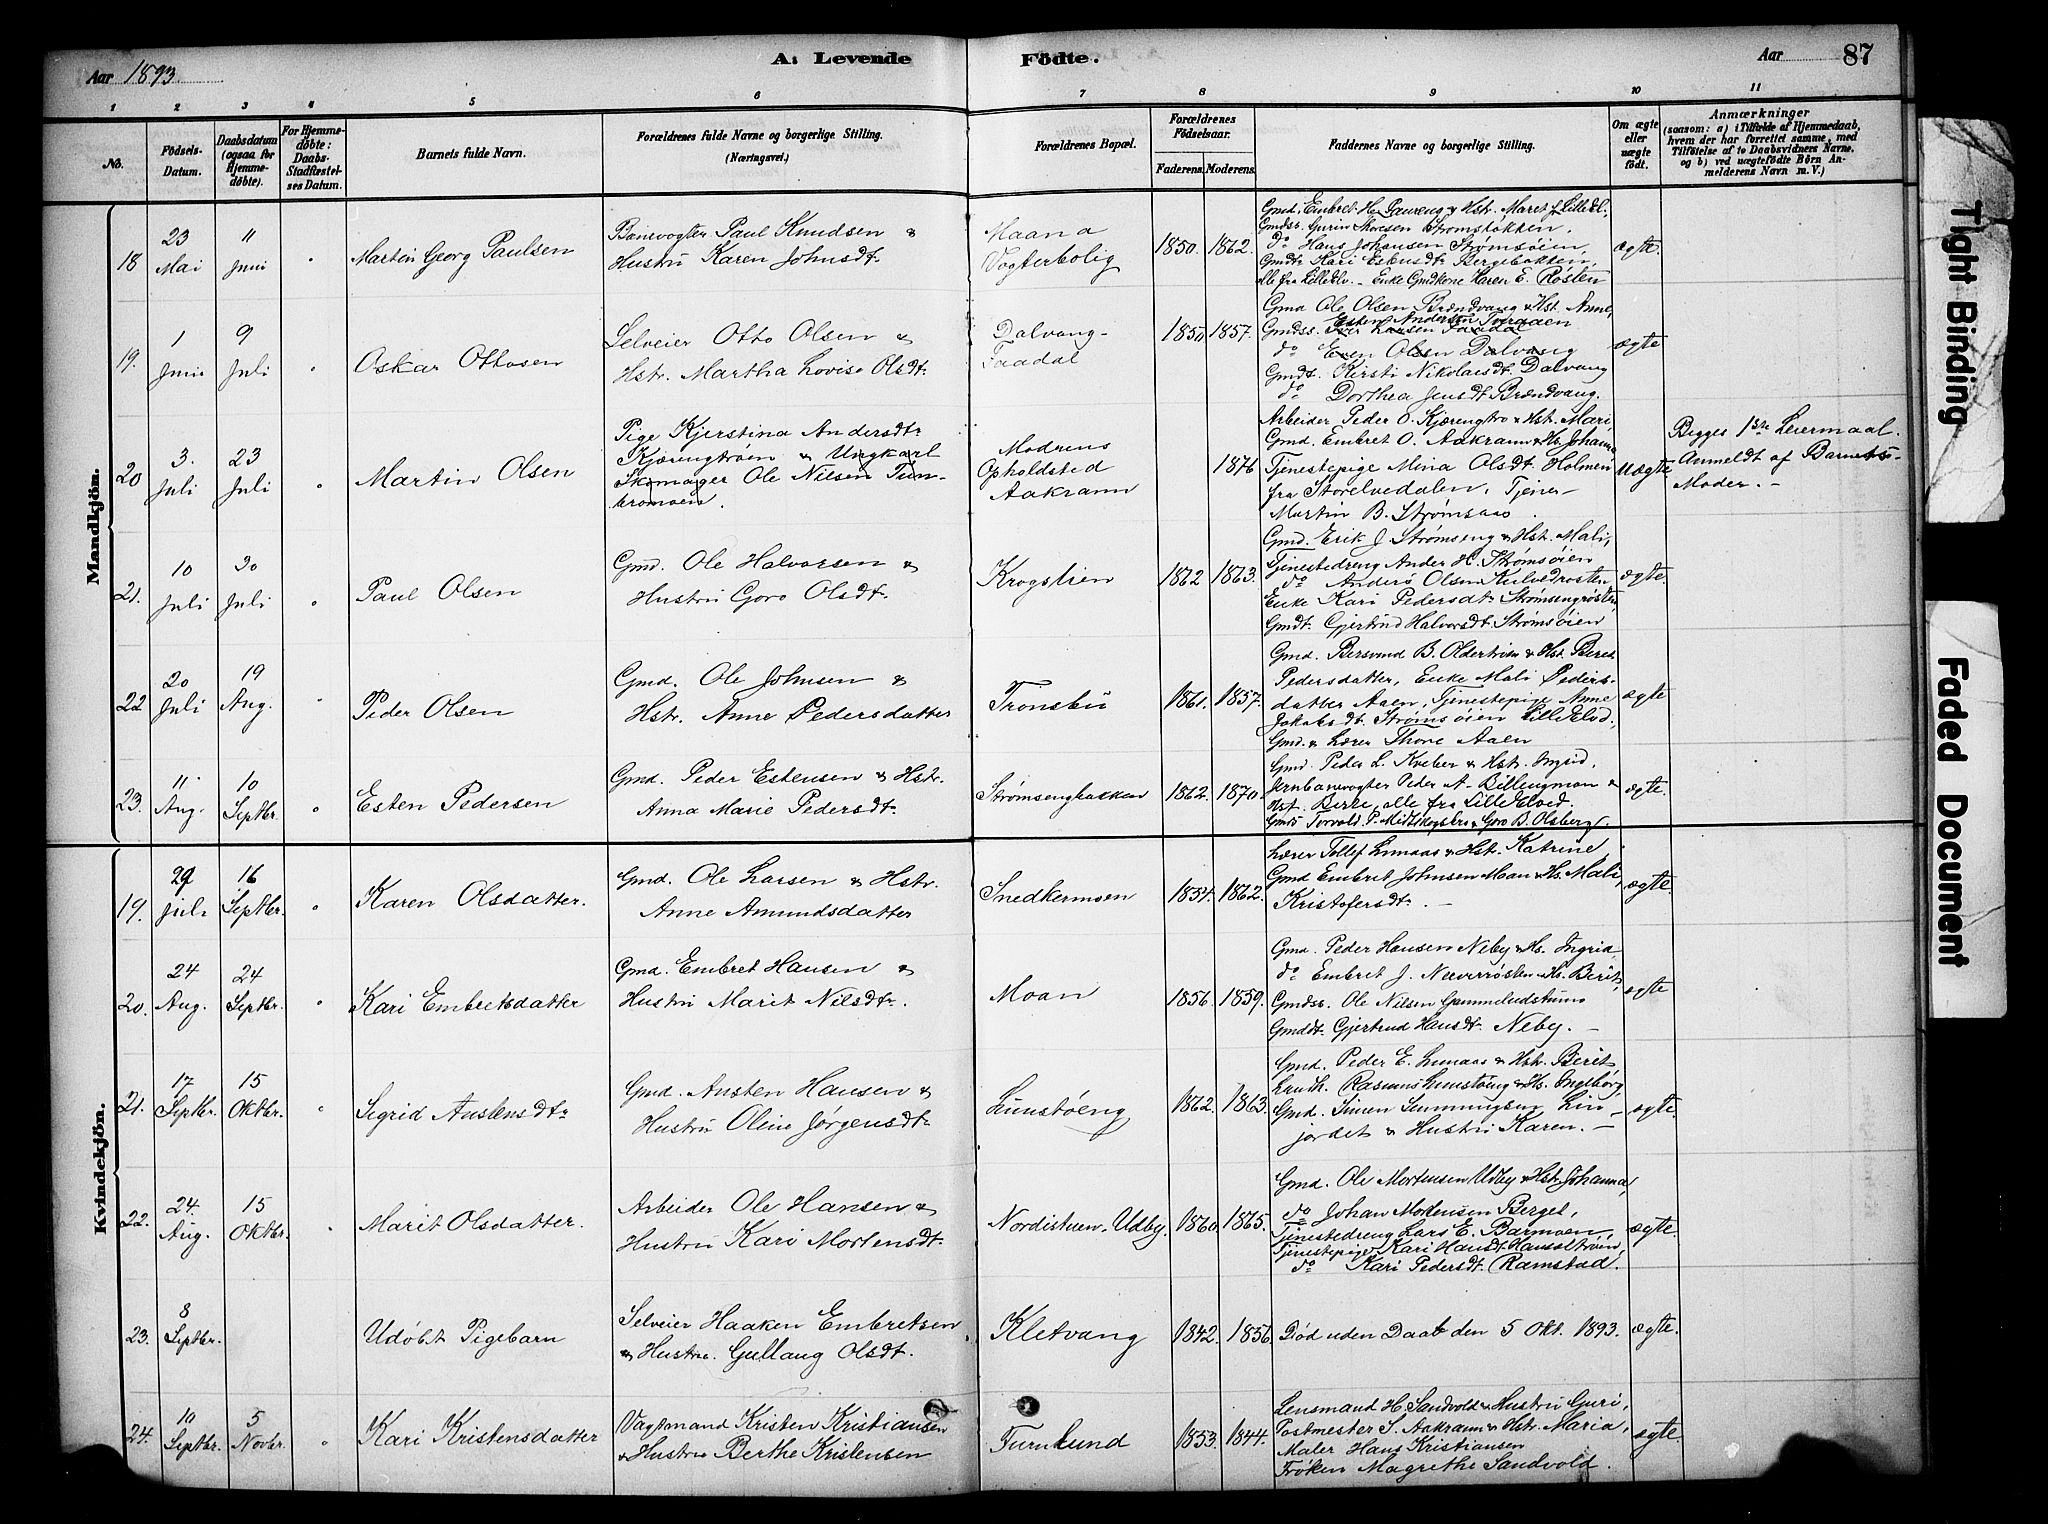 Aar 1893.
A. Levende Födte.
Aar 87
1 2 3 4 5 6 7 8 9 10 11
No.
Födsels-Datum.
Daabsdatum (ogsaa for Hjemmedöbte).
For Hjemmedöbte: Daabs-Stadfæstelses Datum.
Barnets fulde Navn.
Forældrenes fulde Navne og borgerlige Stilling. (Næringsvei.)
Forældrenes Bopæl.
Forældrenes Födselsaar.
Faderens. Moderens.
Faddernes Navne og borgerlige Stilling.
Om ægte eller uægte födt.
Anmærkninger
(saasom: a) i Tilfælde af Hjemmedaab, hvem der har forrettet samme, med Tilföielse af to Daabsvidners Navne, og b) ved uægtefödte Börn Anmelderens Navn m. V.)
Mandkjön.
18 23 Mai 11 Juni " Martin Georg Paulsen
Banevogter Paul Knudsen &
Hustru Karen Johnsdtr
Maana
Vogterbolig
1850. 1862.
Gmd. Embret H. Paureng & Hst. Maret J. Lilleelv.
Gmdsr. Gurin Thoresen Strømsbakken,
do Hans Johansen Strømsøien,
Gmdt. Kari Esbusdt Bergebakken,
alle fra Lilleelv. - Enke Gmdkone Karen E. Røsten
ægte.
19. 1 Juni 9 Juli " Oskar Ottosen
Selveier Otto Olsen &
Hstr. Martha Lovise Olsdtr
Dalvang-
Faadal
1850 1857.
Gmd Ole Olsen Brændvang & Hst. Anne,
Esten Andersen Tveraaen
Gmdss. Iver Larsen Faadal
do Even Olsen Dalvang
Gmdt. Kirsti Nikolaisdt. Dalvang
do Dorthea Jensdt Brændvang.
ægte
20 3. Juli 23 Juli " Martin Olsen
Pige Kjerstina Andersdtr
Kjærengtrøen & Ungkarl
Skomager Ole Nilsen Tum-
bromoen.
Modrens
Opholdsted
Aakrann
1876
Arbeider Peder O. Kjærengtrø & Hst. Mari,
Gmd. Embret O. Aakrann & Hs. Johanna
Tjenestepige Mina Olsdt. Holmen
fra Storelvedalen, Tjener
Martin B. Strømsaas.
Uægte
Begges 1ste Leiermaal.
Anmeldt af Barnets
Moder. -
21. 10 Juli 30 Juli " Paul Olsen
Gmd. Ole Halvorsen &
Hustru Goro Olsdtr
Krogstien
1862 1863.
Gmd. Erik J Strømseng & Hst. Mali,
Tjenestedreng Ander H. Strømsøien
do Anders Olsen Kulvedrosten
Enke Kari Pedersdtr Strømsengrøsten
Gmdt. Gjertrud Halvorsdt. Strømsøien
ægte.
22 20 Juli 19 Aug. " Peder Olsen
Gmd. Ole Johnsen &
Hstr. Anne Pedersdatter
Tronsbu
1861. 1857.
Gmd. Bersvend B. Oldertrøen & Hst. Beret
Pedersdatter, Enke Mali Peders-
datter Aaen, Tjenestepige Anne
Jakobsdt. Strømsøien LilleElvd,
Gmd. & Lærer Thore Aaen
ægte
23. 11 Aug. 10 Septbr. " Esten Pedersen
Gmd. Peder Estensen & Hstr.
Anna Marie Pedersdtr
Strømsengbakken
1862. 1870
Gmd. Peder L. Kveber & Hst. Ingrid,
Jernbanevogter Peder A. Billengmoen &
Hst. Berte, alle fra LilleElved.
Gmds Torvald P. Midtskogsbro & Goro B. Olsberg.
ægte.
Kvindekjön.
19. 29 Juli 16 Septbr. " Karen Olsdatter.
Gmd. Ole Larsen & Hstr.
Anne Amundsdatter
Snedkermoen
1854. 1862.
Lærer Tollef Lunaas & Hst. Katrine
Gmd Embret Johnsen Moan & Hs. Mali,
Kristofersdtr. -
ægte
20. 24 Aug. 24 Septbr. " Kari Embretsdatter
Gmd. Embret Hansen &
Hustru Marit Nilsdtr.
Moan
1856. 1859.
Gmd. Peder Hansen Neby & Hs. Ingrid,
do Embret J. Neverrøsten & Hs. Berit,
Gmdss. Ole Nilsen Gammeludstumo
Gmddt. Gjertrud Hansdt. Neby. -
ægte
21. 17 Septbr. 15 Oktbr. " Sigrid Austensdtr
Gmd. Austen Hansen &
Hustru Oline Jørgensdtr
Lunstøeng
1862. 1863.
Gmd. Peder E. Lunaas & Hst. Berit
Lruth. Rasmus Lunstøeng & Hs. Ingeborg
Gmd. Simen Semmingsen Lin-
jordet & Hustru Karen. -
ægte.
22. 24. Aug. 15 Oktbr. " Marit Olsdatter.
Arbeider Ole Hansen &
Hustru Kari Mortensdtr.
Nordistuen, Udby.
1860 1865.
Gmd. Ole Mortensen Udby & Hst. Johanna,
do Johan Mortensen Berget,
Tjenestedreng Lars E. Barmoen,
Tjenestepige Kari Hansdt. Hansoltrøen,
do Kari Pedersdt. Ramstad.
ægte.
23. 8 Septbr. Udøbt Pigebarn
Selveier Haaken Embretsen
& Hustru. Gullaug Olsdtr.
Kletvang
1842. 1856
Død uden Daab den 5 Okt. 1893.
ægte.
24. 10 Septbr. 5 Novbr. " Kari Kristensdatter
Vagtmand Kristen Kristiansen
& Hustru Berthe Kristensen
Turnlund
1853. 1844.
Lensmand H. Sandvold & Hustru Guri,
Postmester S. Aakrann & Hstr. Maria,
Maler Hans Kristiansen
Frøken Magrethe Sandvold.
ægte.
Tight Binding
Faded Document